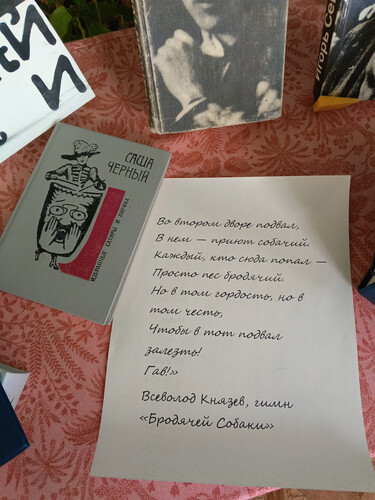 СКИ
И
Игорь Се
САША
ЧЕРНЫЙ
ИЗБРАННЫЕ САТИРЫ И ЛИРИКА
Во втором дворе подвал,
В нем — приют собачий.
Каждый, кто сюда попал —
Просто пес бродячий.
Но в том гордость, но в
том честь,
Чтобы в тот подвал
залезть!
Гав!»
Всеволод Князев, гимн
«Бродячей Собаки»